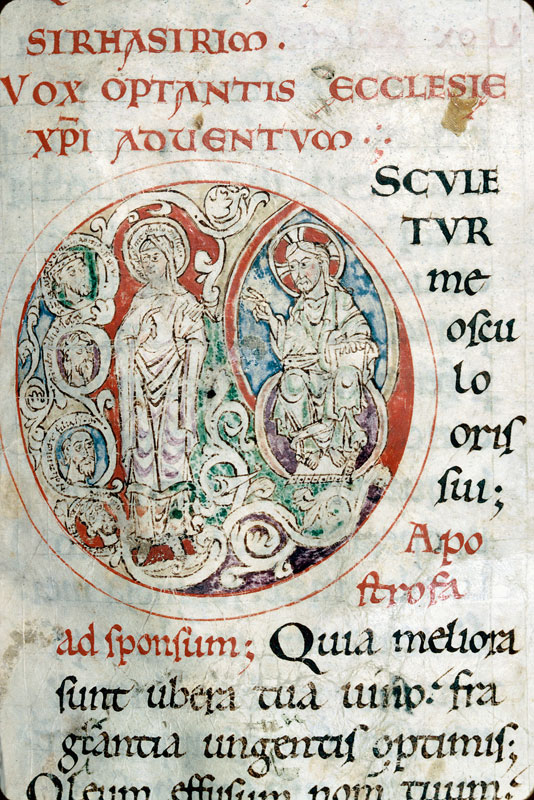 SIRHASIRIM.
VOX OPTANTIS ECCLESIE
XP̅I ADUENTVM
SCVLE
TVR
me
oſcu
lo
oriſ
ſui;
Apo
ſtrofa
ad ſponſum; Quia meliora
ſunt ubera tua uino. fra
grantia ungentiſ optimiſ;
Oleum effuſum nom̅ tuum.